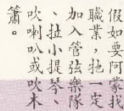 假如要阿蒙找
職業，牠一定
加入管弦樂隊
、拉小提琴、
吹喇叭或吹木
簫。